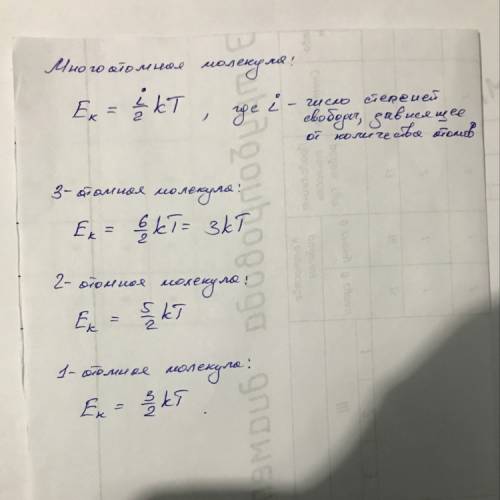 Многоатомная молекула:
Eк = i/2 kT , где i - число степеней
свободы, зависящее
от количества атомов
3-атомная молекула:
Eк = 6/2 kT = 3kT
2-атомная молекула:
Eк = 5/2 kT
1-атомная молекула:
Eк = 3/2 kT .